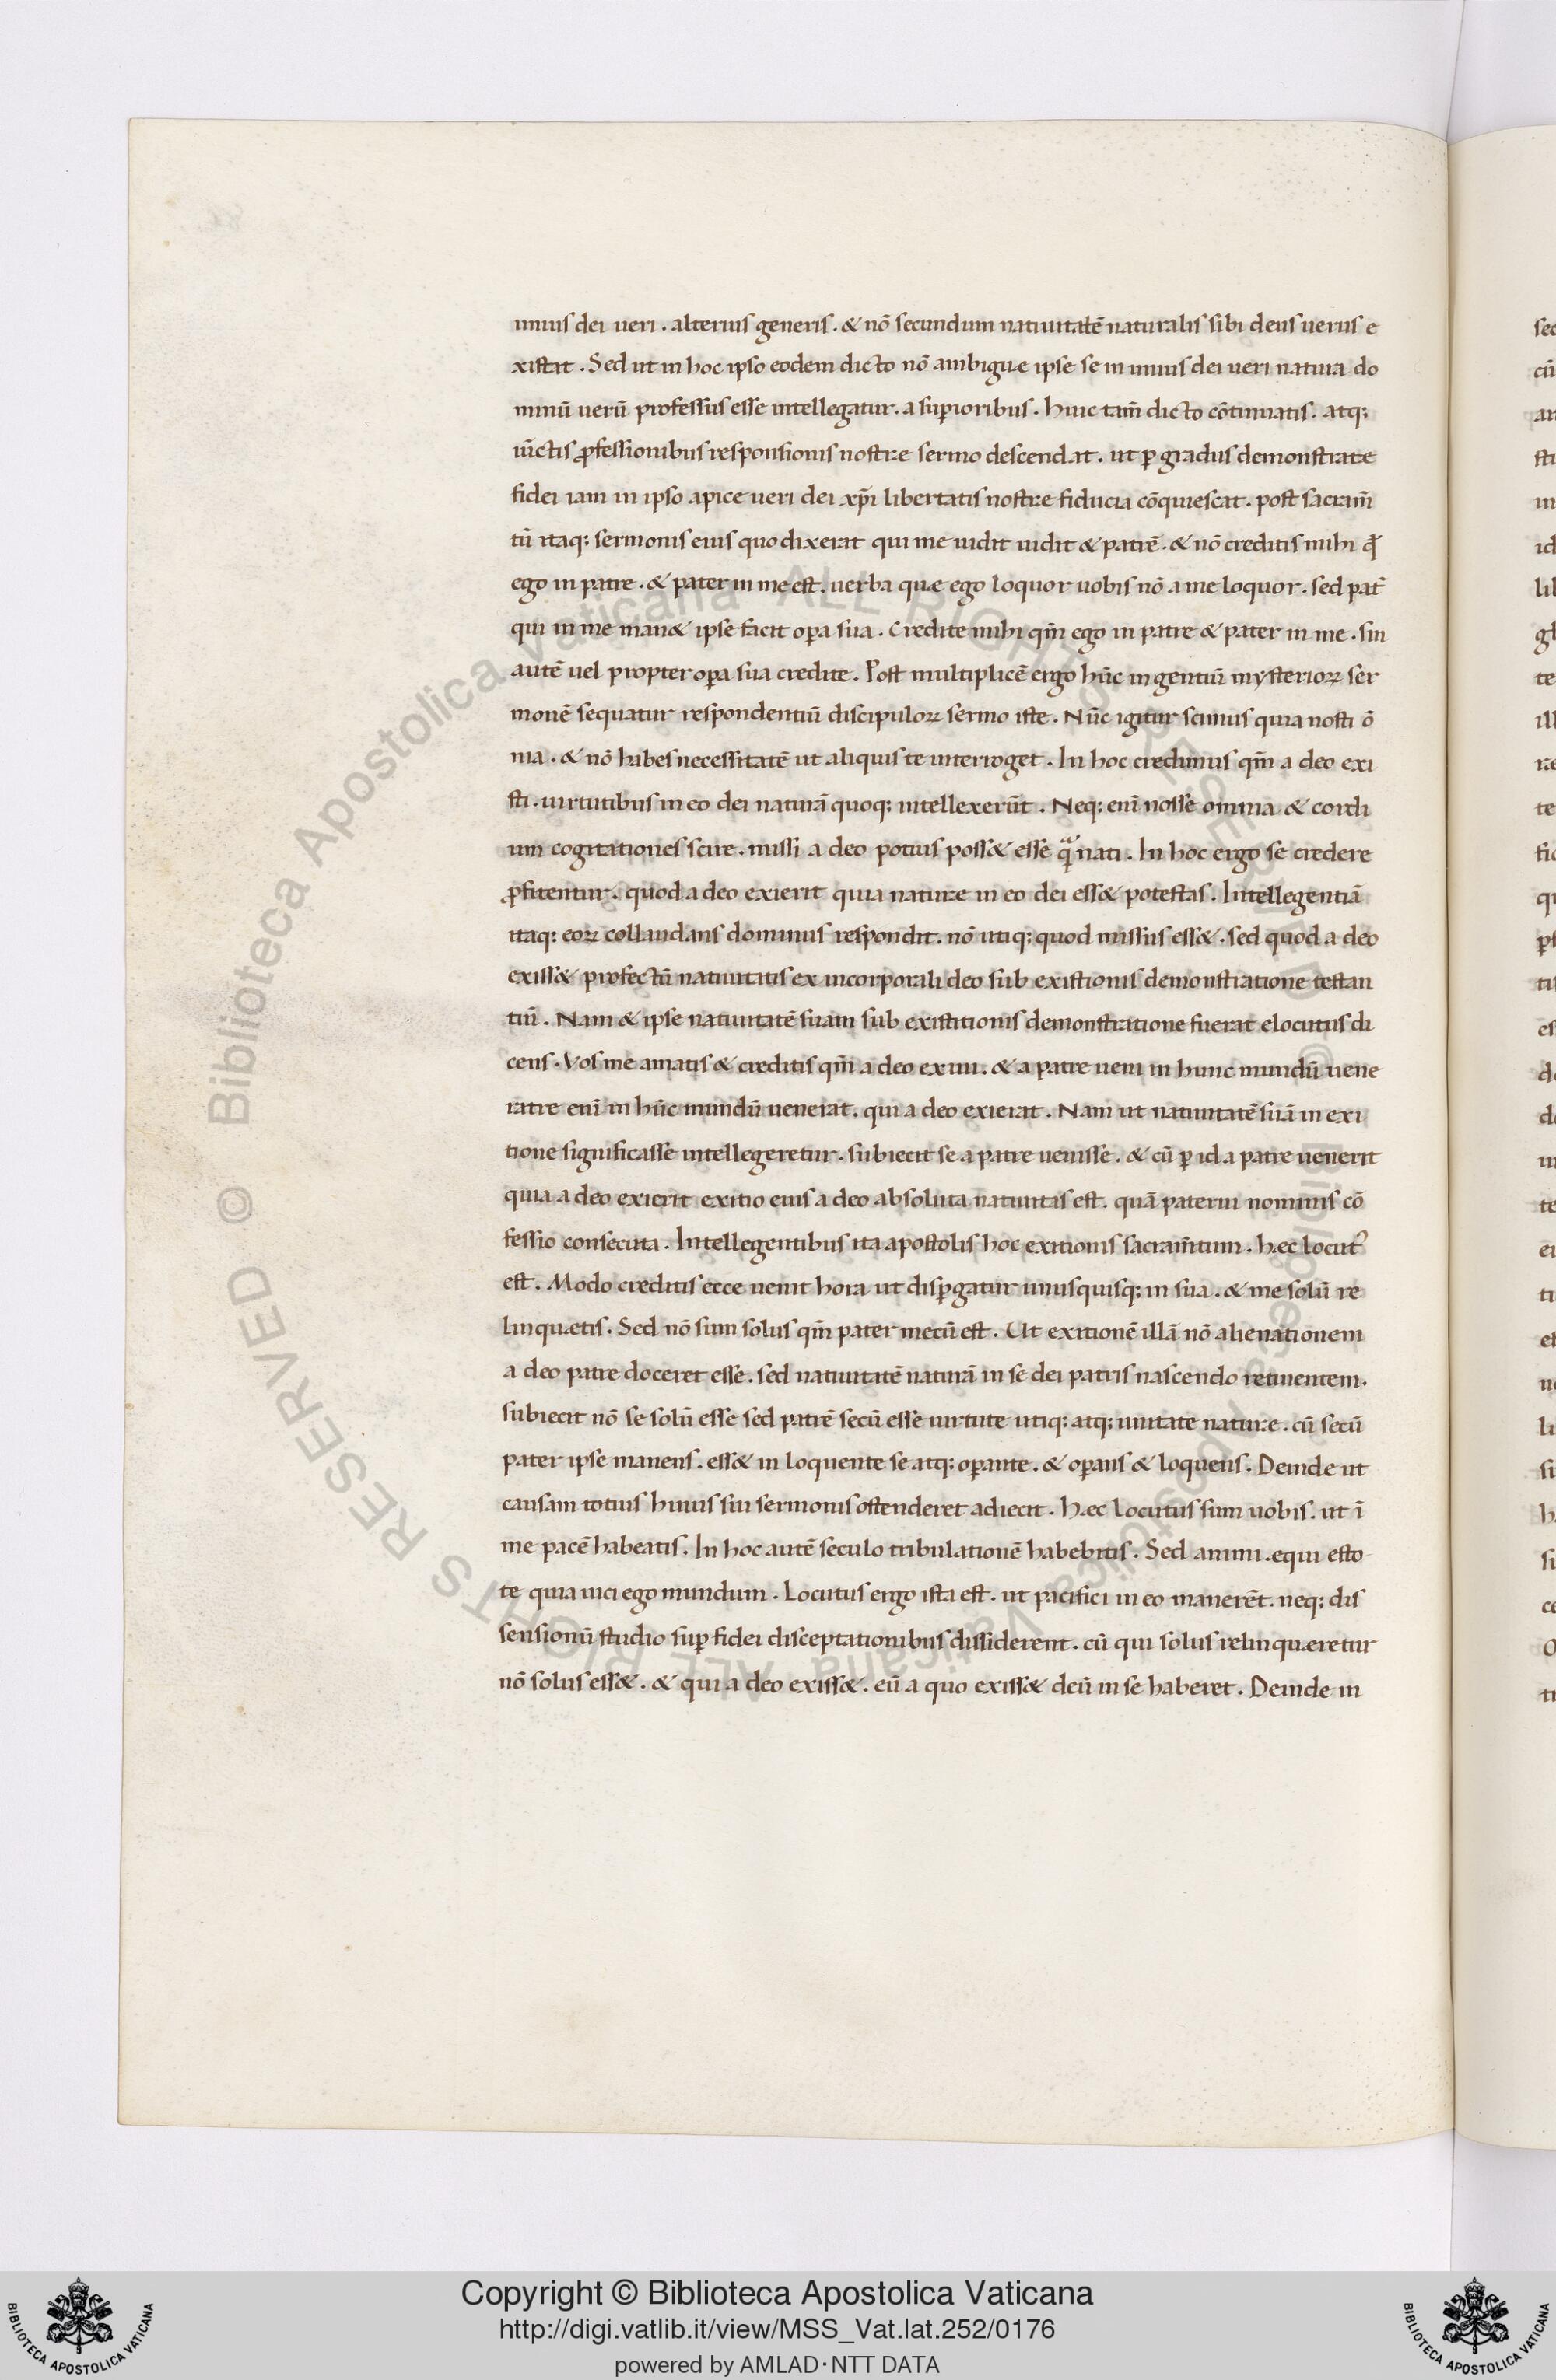 unius dei ueri. alterius generis. & nō secundum natiuitatē naturalis sibi deus uerus e
xistat. Sed ut in hoc ipso eodem dicto nō ambigue ipse se in unius dei ueri natura do
minū uerū professus esse intellegatur. a suꝑioribus. huic tam̄ dicto cōtinuatis. atq:
iūctis ꝓfessionibus responsionis nostræ sermo descendat. ut ꝑ gradus demonstratæ
fidei iam in ipso apice ueri dei xp̄i libertatis nostræ fiducia cōquiescat. post sacram̄
tū itaq: sermonis eius quo dixerat qui me uidit uidit & patrē. & nō creditis mihi qđ
ego in patre. & pater in me est. uerba quæ ego loquor uobis nō a me loquor. sed pat̄
qui in me man& ipse facit oꝑa sua. Credite mihi qm̄ ego in patre & pater in me. sin
autē uel propter oꝑa sua credite. Post multiplicē ergo hūc ingentiū mysterioꝝ ser
monē sequatur respondentiū discipuloꝝ sermo iste. Nūc igitur scimus quia nosti ō
nia. & nō habes necessitatē ut aliquis te interroget. In hoc credimus qm̄ a deo exi
sti. uirtutibus in eo dei naturā quoq: intellexerūt. Neq: enī nosse omnia & cordi
um cogitationes scire. missi a deo potius poss& esse quā nati. In hoc ergo se credere
ꝓfitentur. quod a deo exierit quia naturæ in eo dei ess& potestas. Intellegentiā
itaq: eoꝝ collaudans dominus respondit. nō utiq: quod missus ess&. sed quod a deo
exiss& profectū natiuitatis ex incorporali deo sub existionis demonstratione testan
tiū. Nam & ipse natiuitatē suam sub existitionis demonstratione fuerat elocutus di
cens. Vos me amatis & creditis qm̄ a deo exiui. & a patre ueni in hunc mundū uene
ratre enī in hūc mundū uenerat. qui a deo exierat. Nam ut natiuitatē suā in exi
tione significasse intellegeretur. subiecit se a patre uenisse. & cū ꝑ id a patre uenerit
quia a deo exierit exitio eius a deo absoluta natiuitas est. quā paterni nominis cō
fessio consecuta. Intellegentibus ita apostolis hoc exitionis sacram̄tum. hæc locut᾽
est. Modo creditis ecce uenit hora ut disꝑgatur unusquisq: in sua. & me solū re
linquetis. Sed nō sum solus qm̄ pater mecū est. Ut exitionē illā nō alienationem
a deo patre doceret esse. sed natiuitatē naturā in se dei patris nascendo retinentem.
subiecit nō se solū esse sed patrē secū esse uirtute utiq: atq: unitate naturæ. cū secū
pater ipse manens. ess& in loquente se atq: oꝑante. & oꝑans & loquens. Deinde ut
causam totius huius sui sermonis ostenderet adiecit. Hæc locutus sum uobis. ut ī
me pacē habeatis. In hoc autē seculo tribulationē habebitis. Sed animi æqui esto
te quia uici ego mundum. Locutus ergo ista est. ut pacifici in eo manerēt. neq: dis
sensionū studio suꝑ fidei disceptationibus dissiderent. cū qui solus relinqueretur
nō solus ess&. & qui a deo exiss&. eū a quo exiss& deū in se haberet. Deinde in
© Biblioteca Apostolica Vaticana ALL RIGHTS RESERVED
© Biblioteca Apostolica Vaticana ALL RIGHTS RESERVED
Copyright © Biblioteca Apostolica Vaticana
http://digi.vatlib.it/view/MSS_Vat.lat.252/0176
powered by AMLAD·NTT DATA
BIBLIOTECA APOSTOLICA VATICANA
BIBLIOTECA APOSTOLICA VATICANA